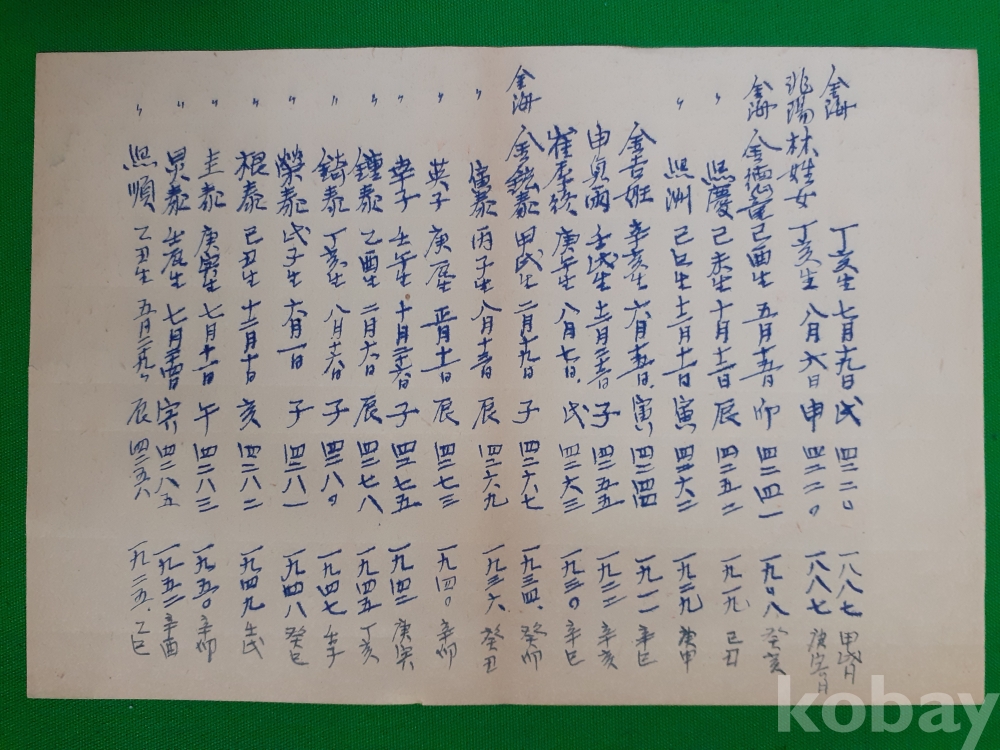 金海 丁亥生 七月十九日 戌 四二二〇 一八八七 甲戌月
兆陽 林姓女 丁亥生 八月六日 申 四二二〇 一八八七 庚寅月
金海 金德竜 己酉生 五月十五日 卯 四二四一 一九〇八 癸亥
〃 熙慶 己未生 十月十三日 辰 四二五二 一九一九 己丑
〃 熙洲 己巳生 十二月十一日 寅 四二六二 一九二九 庚申
金吉姙 辛亥生 六月十五日 寅 四二四四 一九一一 辛巳
申貞雨 壬戌生 子 四二五五 一九二二 辛亥
崔 庚午生 八月七日 戌 四二六三 一九三〇 辛巳
金海 金鉉泰 甲戌生 二月十九日 子 四二六七 一九三四 癸卯
〃 寅泰 丙子生 八月十三日 辰 四二六九 一九三六 癸丑
〃 英子 庚辰生 正月十一日 辰 四二七三 一九四〇 辛卯
〃 幸子 壬午生 十月二十六日 子 四二七五 一九四二 庚寅
〃 鍾泰 乙酉生 二月六日 辰 四二七八 一九四五 丁亥
〃 錡泰 丁亥生 八月十六日 子 四二八〇 一九四七 壬子
〃 榮泰 戊子生 六月一日 子 四二八一 一九四八 癸巳
〃 根泰 己丑生 十二月十日 亥 四二八二 一九四九 壬戌
〃 圭泰 庚寅生 七月十一日 午 四二八三 一九五〇 辛卯
〃 炅泰 壬辰生 七月二十四日 寅 四二八五 一九五二 辛酉
〃 熙順 乙丑生 五月二九日 辰 四二五八 一九二五 乙巳
kobay